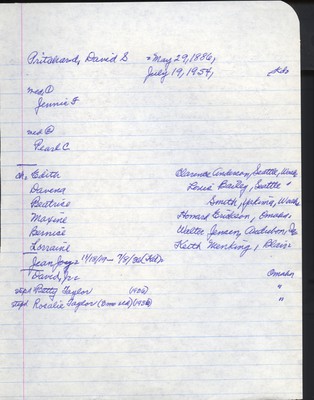 Pritchard, David S = May 29, 1886,
July 19, 1954,
med ①
Jennie F
med ②
Pearl C
ch. Edith Clarence Anderson, Seattle, Wash
Davena Louis Bailey, Seattle "
Beatrice Smith, Yakima, Wash
Maxine Howard Erickson, Omaha.
Bernice Walter Jensen, Audubon, Ia
Lorraine Keith Menking, Blair
Jean Joy =
David, Jr. Omaha
step Betty Taylor "
step Rosalie Taylor "